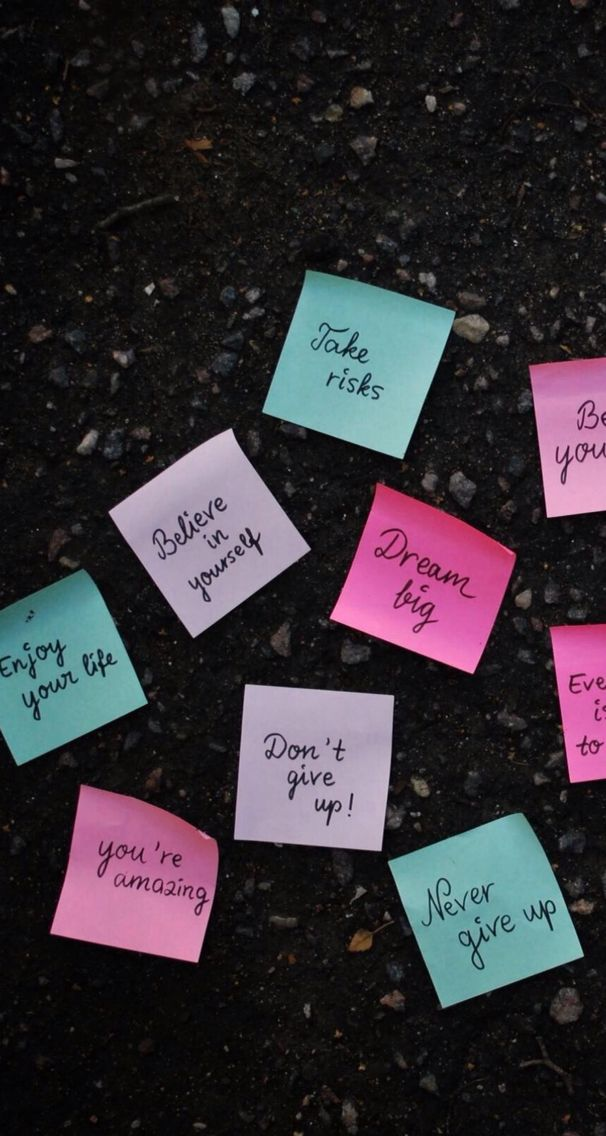 Take
risks
Believe
in
yourself
Dream
big
Enjoy
your life
Don't
give
up!
you're
amazing
Never
give up
to